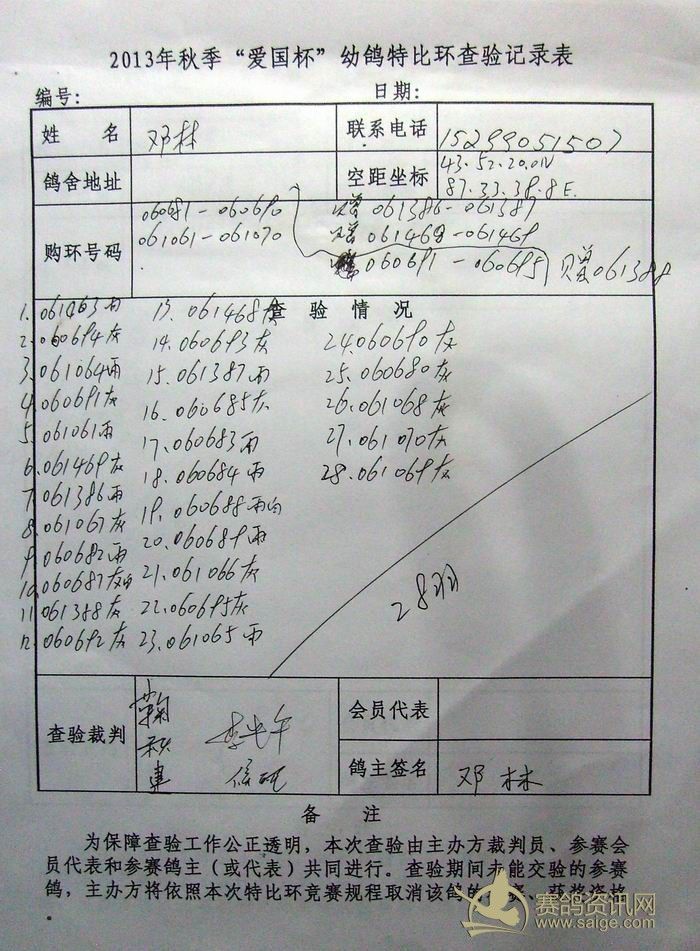 2013年秋季“爱国杯”幼鸽特比环查验记录表
编号: 日期:
姓 名 邓林 联系电话 15299051507
鸽舍地址 空距坐标 43.52.20.0N
87.33.38.8E.
购环号码 060681-060690 赠061386-061387
061061-061070 赠061468-061469
060691-060695 赠061388
查 验 情 况
1.061463雨 13.061468灰
2.060694灰 14.060693灰 24.060690灰
3.061064雨 15.061387雨 25.060680灰
4.060691灰 16.060685灰 26.061068灰
5.061061雨 17.060683雨 27.061070灰
6.061469灰 18.060684雨 28.061069灰
7.061386雨 19.060688雨白
8.061067灰 20.060689雨
9.060682雨 21.061066灰
10.060687灰白 22.060695灰
11.061388灰 23.061065雨
12.060692灰
28羽
查验裁判 鞠秋建 会员代表
鸽主签名 邓林
备 注
为保障查验工作公正透明，本次查验由主办方裁判员、参赛会
员代表和参赛鸽主（或代表）共同进行。查验期间未能交验的参赛
鸽，主办方将依照本次特比环竞赛规程取消该鸽的 赛、获奖资格
。
赛鸽资讯网
www.saige.com